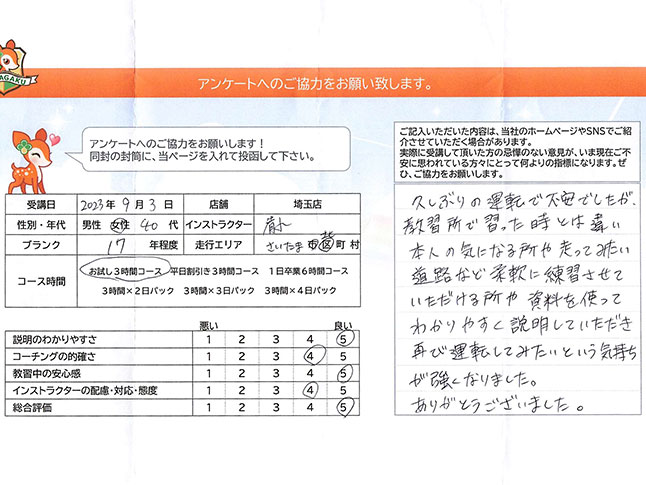 AGAKU
アンケートへのご協力をお願い致します。
アンケートへのご協力をお願いします！
同封の封筒に、当ページを入れて投函して下さい。
受講日 2023年 9月 3日 店舗 埼玉店
性別・年代 男性 女性 40代 インストラクター
ブランク 17 年程度 走行エリア さいたま 市区町村
コース時間 お試し3時間コース 平日割引き3時間コース 1日卒業6時間コース
3時間×2日パック 3時間×3日パック 3時間×4日パック
悪い 良い
説明のわかりやすさ 1 2 3 4 5
コーチングの的確さ 1 2 3 4 5
教習中の安心感 1 2 3 4 5
インストラクターの配慮・対応・態度 1 2 3 4 5
総合評価 1 2 3 4 5
ご記入いただいた内容は、当社のホームページやSNSでご紹
介させていただく場合があります。
実際に受講して頂いた方の忌憚のない意見が、いま現在ご不
安に思われている方々にとって何よりの指標になります。ぜ
ひ、ご協力をお願いします。
久しぶりの運転で不安でしたが、
教習所で習った時とは違い
本人の気になる所や走ってみたい
道路など柔軟に練習させて
いただける所や資料を使って
わかりやすく説明していただき
再び運転してみたいという気持ち
が強くなりました。
ありがとうございました。